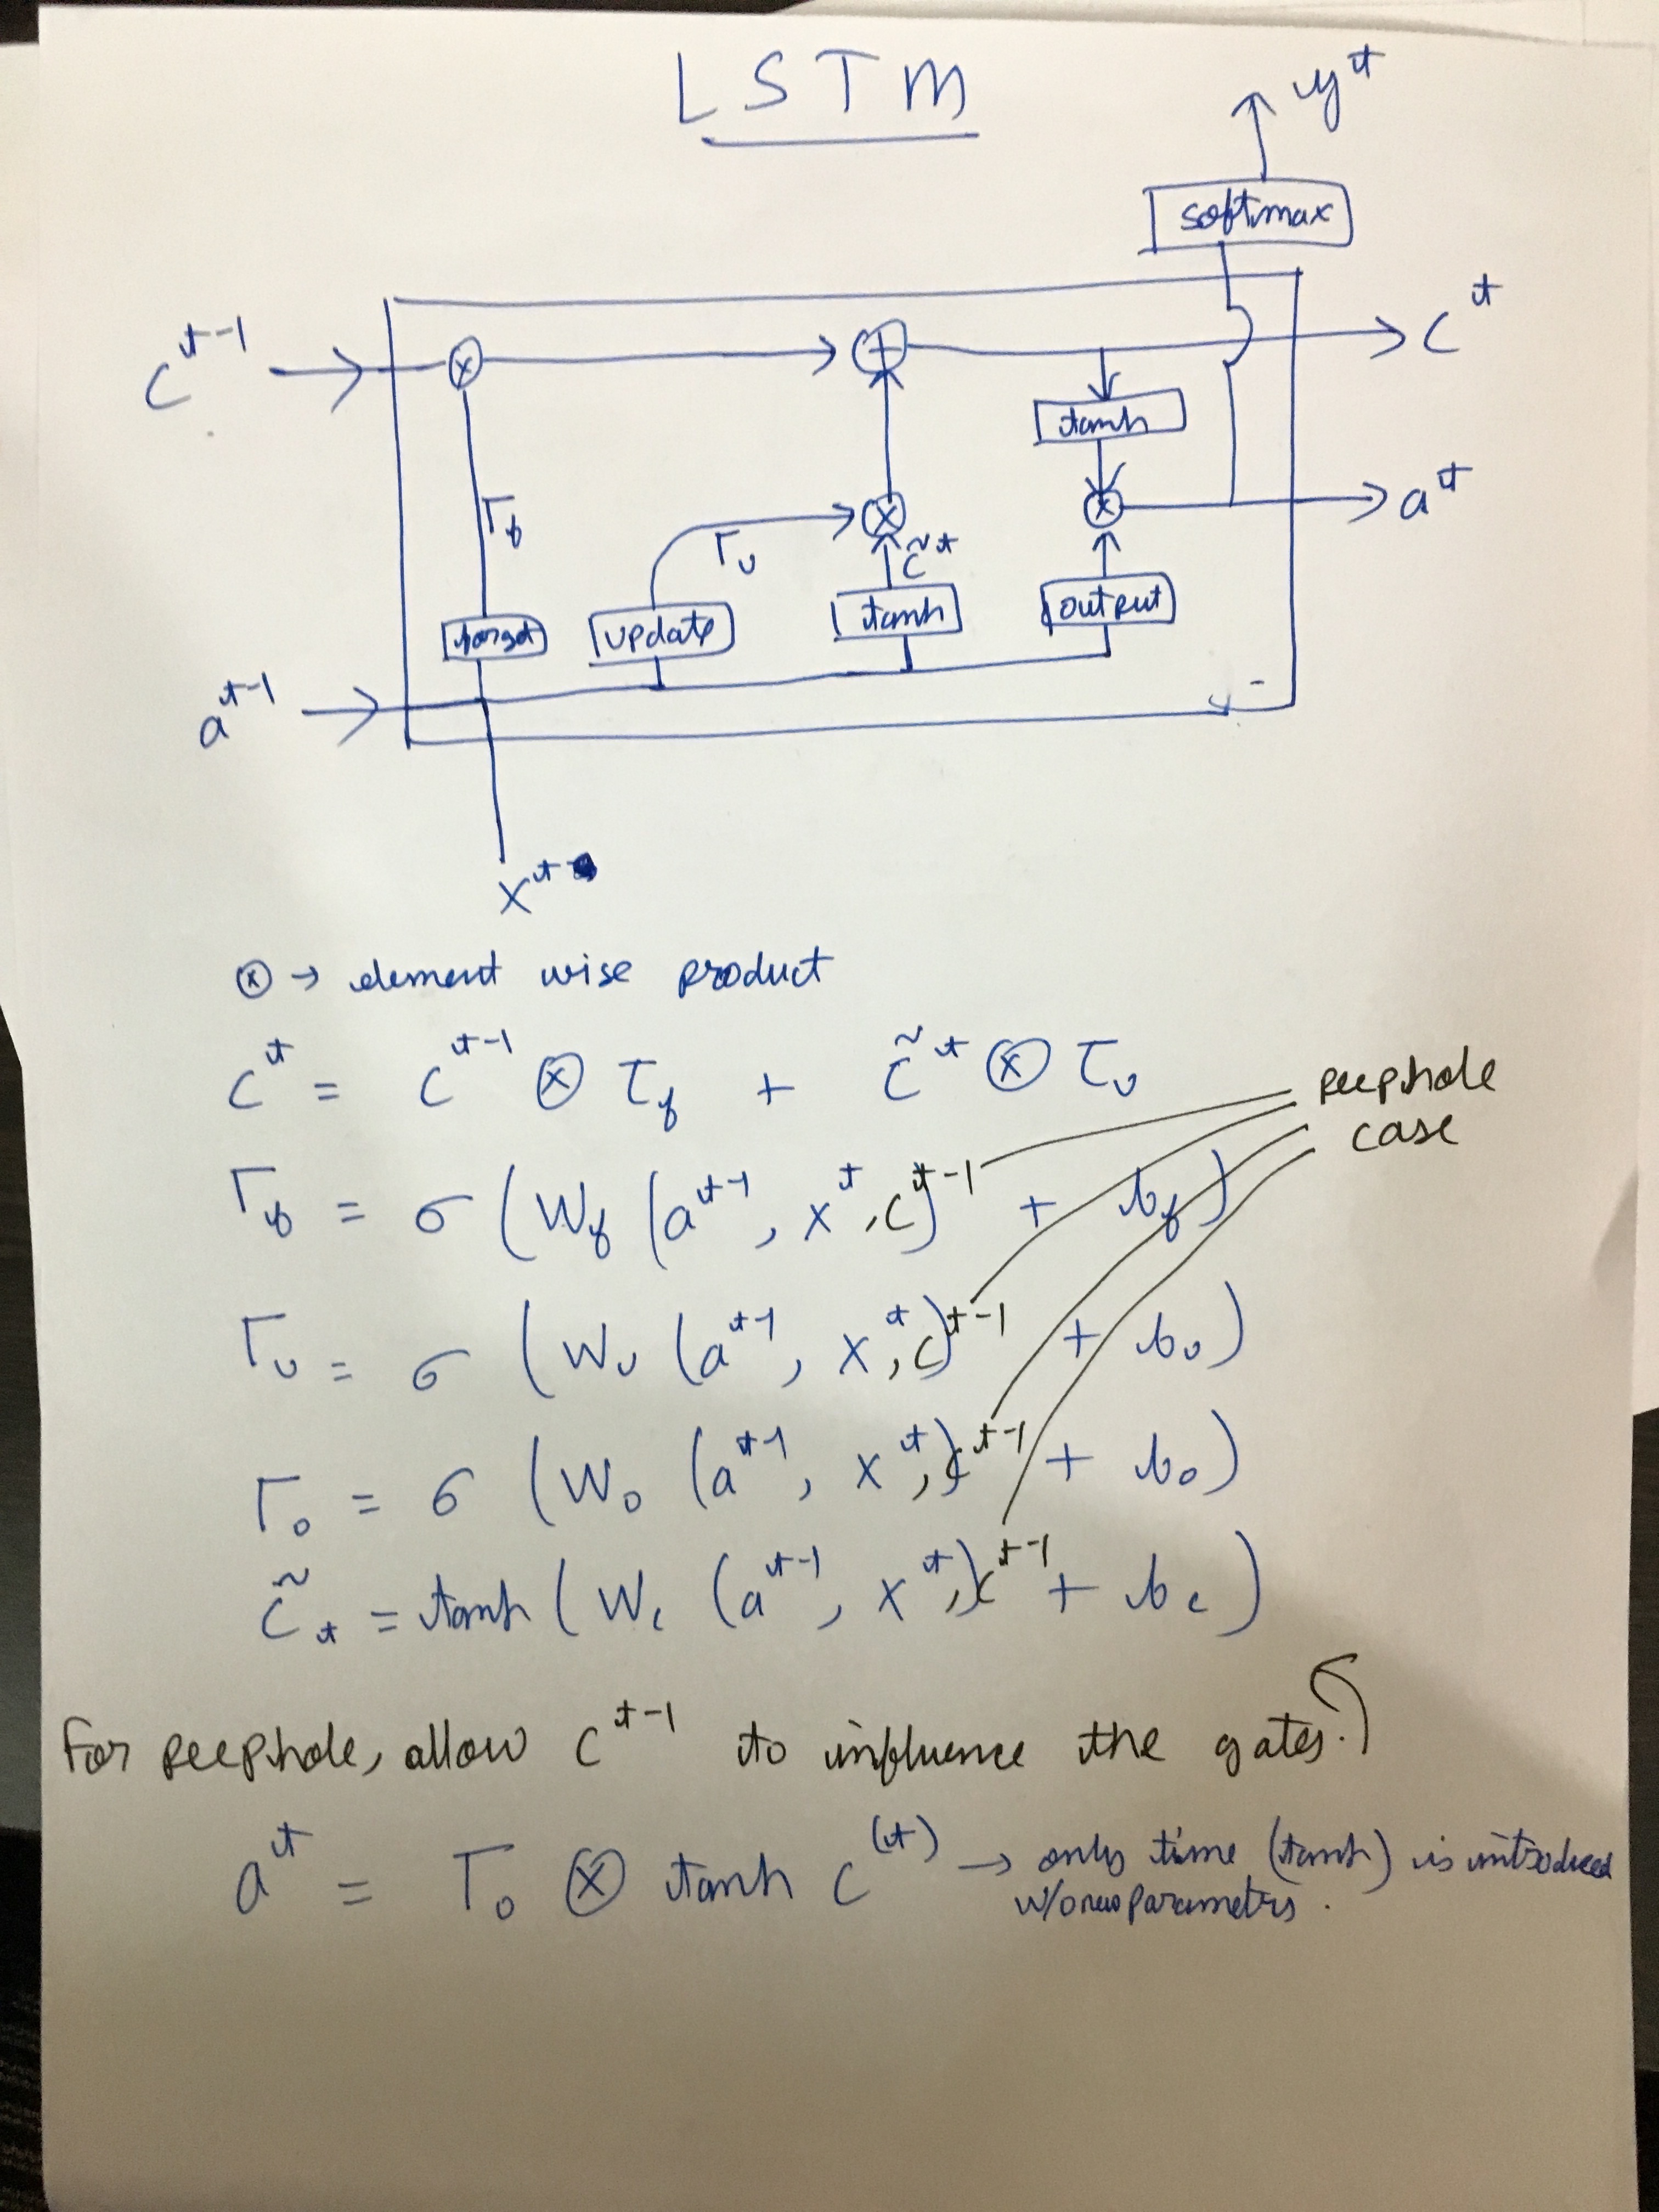 LSTM
y^t
softmax
c^{t-1} ⊗ + c^t
tanh
Γ_f Γ_u ⊗ c̃^t ⊗ a^t
forget update tanh output
a^{t-1}
x^t
⊗ → element wise product
c^t = c^{t-1} ⊗ Γ_f + c̃^t ⊗ Γ_u
peephole
case
Γ_f = σ (W_f (a^{t-1}, x^t, c^{t-1}) + b_f)
Γ_u = σ (W_u (a^{t-1}, x^t, c^{t-1}) + b_u)
Γ_o = σ (W_o (a^{t-1}, x^t, c^{t-1}) + b_o)
c̃_t = tanh (W_c (a^{t-1}, x^t, c^{t-1}) + b_c)
For peephole, allow c^{t-1} to influence the gates.
a^t = Γ_o ⊗ tanh c^{(t)} → only time (tanh) is introduced
w/o new parameters.